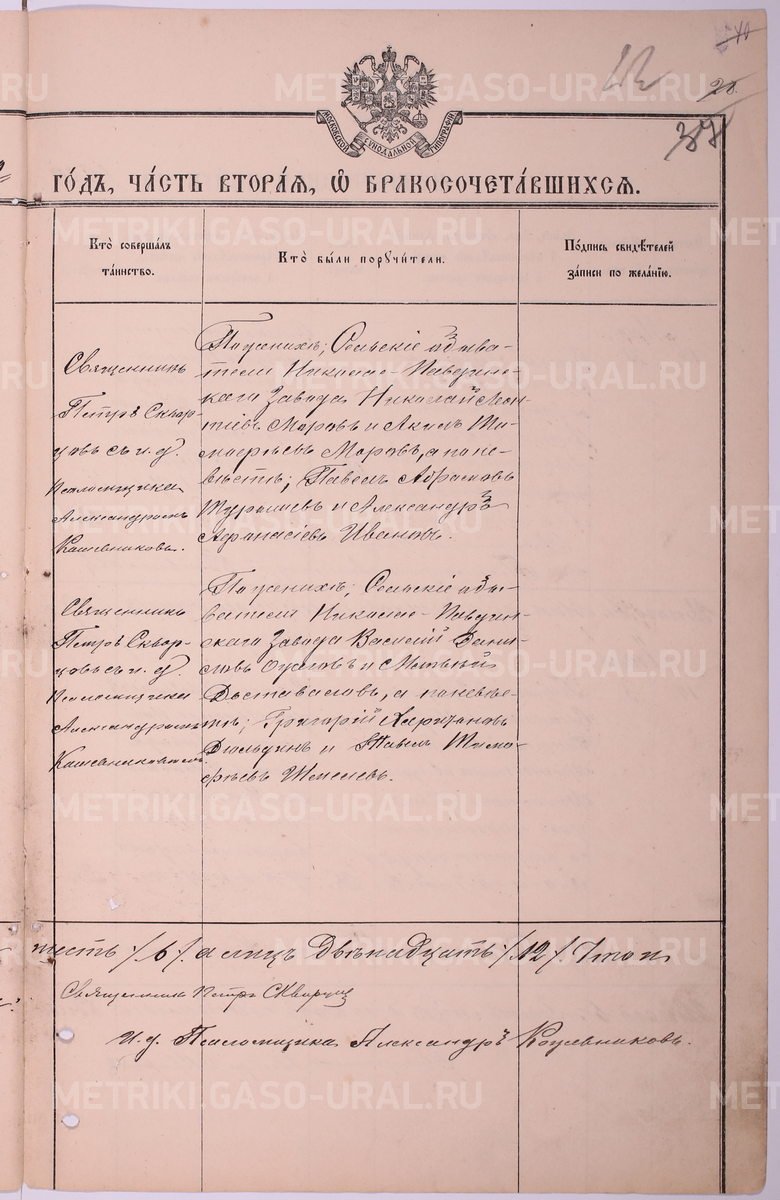 40
42
28
37
МОСКОВСКОЙ СѴНОДАЛЬНОЙ ТИПОГРАФІИ
ГО́ДЪ, ЧА́СТЬ ВТОРА́Я, Ѽ БРАКОСОЧЕТА́ВШИХСЯ.
Кто̀ соверша́лъ
та́инство.
Кто̀ бы́ли порꙋчи́тели.
По́дпись свидѣ́телей
за́писи по жела́нїю.
Священникъ
Петръ Сквор-
цовъ съ и. д.
Псаломщика
Александромъ
Кожевниковъ.
По женихѣ; Сельскіе обыва-
тели Николае-Павдин-
скаго Завода Николай Леон-
тіевъ Моровъ и Акимъ Ти-
мофѣевъ Моровъ, а по не-
вѣстѣ; Павелъ Абрамовъ
и Александръ
Афанасіевъ Ивановъ.
Священникъ
Петръ Сквор-
цовъ съ и. д.
Псаломщика
Александромъ
Кожевниковымъ.
По женихѣ; Сельскіе обы-
ватели Николае-Павдин-
скаго Завода Василій Дани-
ловъ и Матвѣй
Доставаловъ, а по невѣс-
тѣ; Григорій Харитановъ
Дюльдинъ и Павелъ Тимо-
фѣевъ Шмелевъ.
шесть /6/. а лицъ Двѣнадцать /12/.
Священникъ Петръ Скворцовъ
И. д. Псаломщика Александръ Кожевниковъ.
METRIKI.GASO-URAL.RU